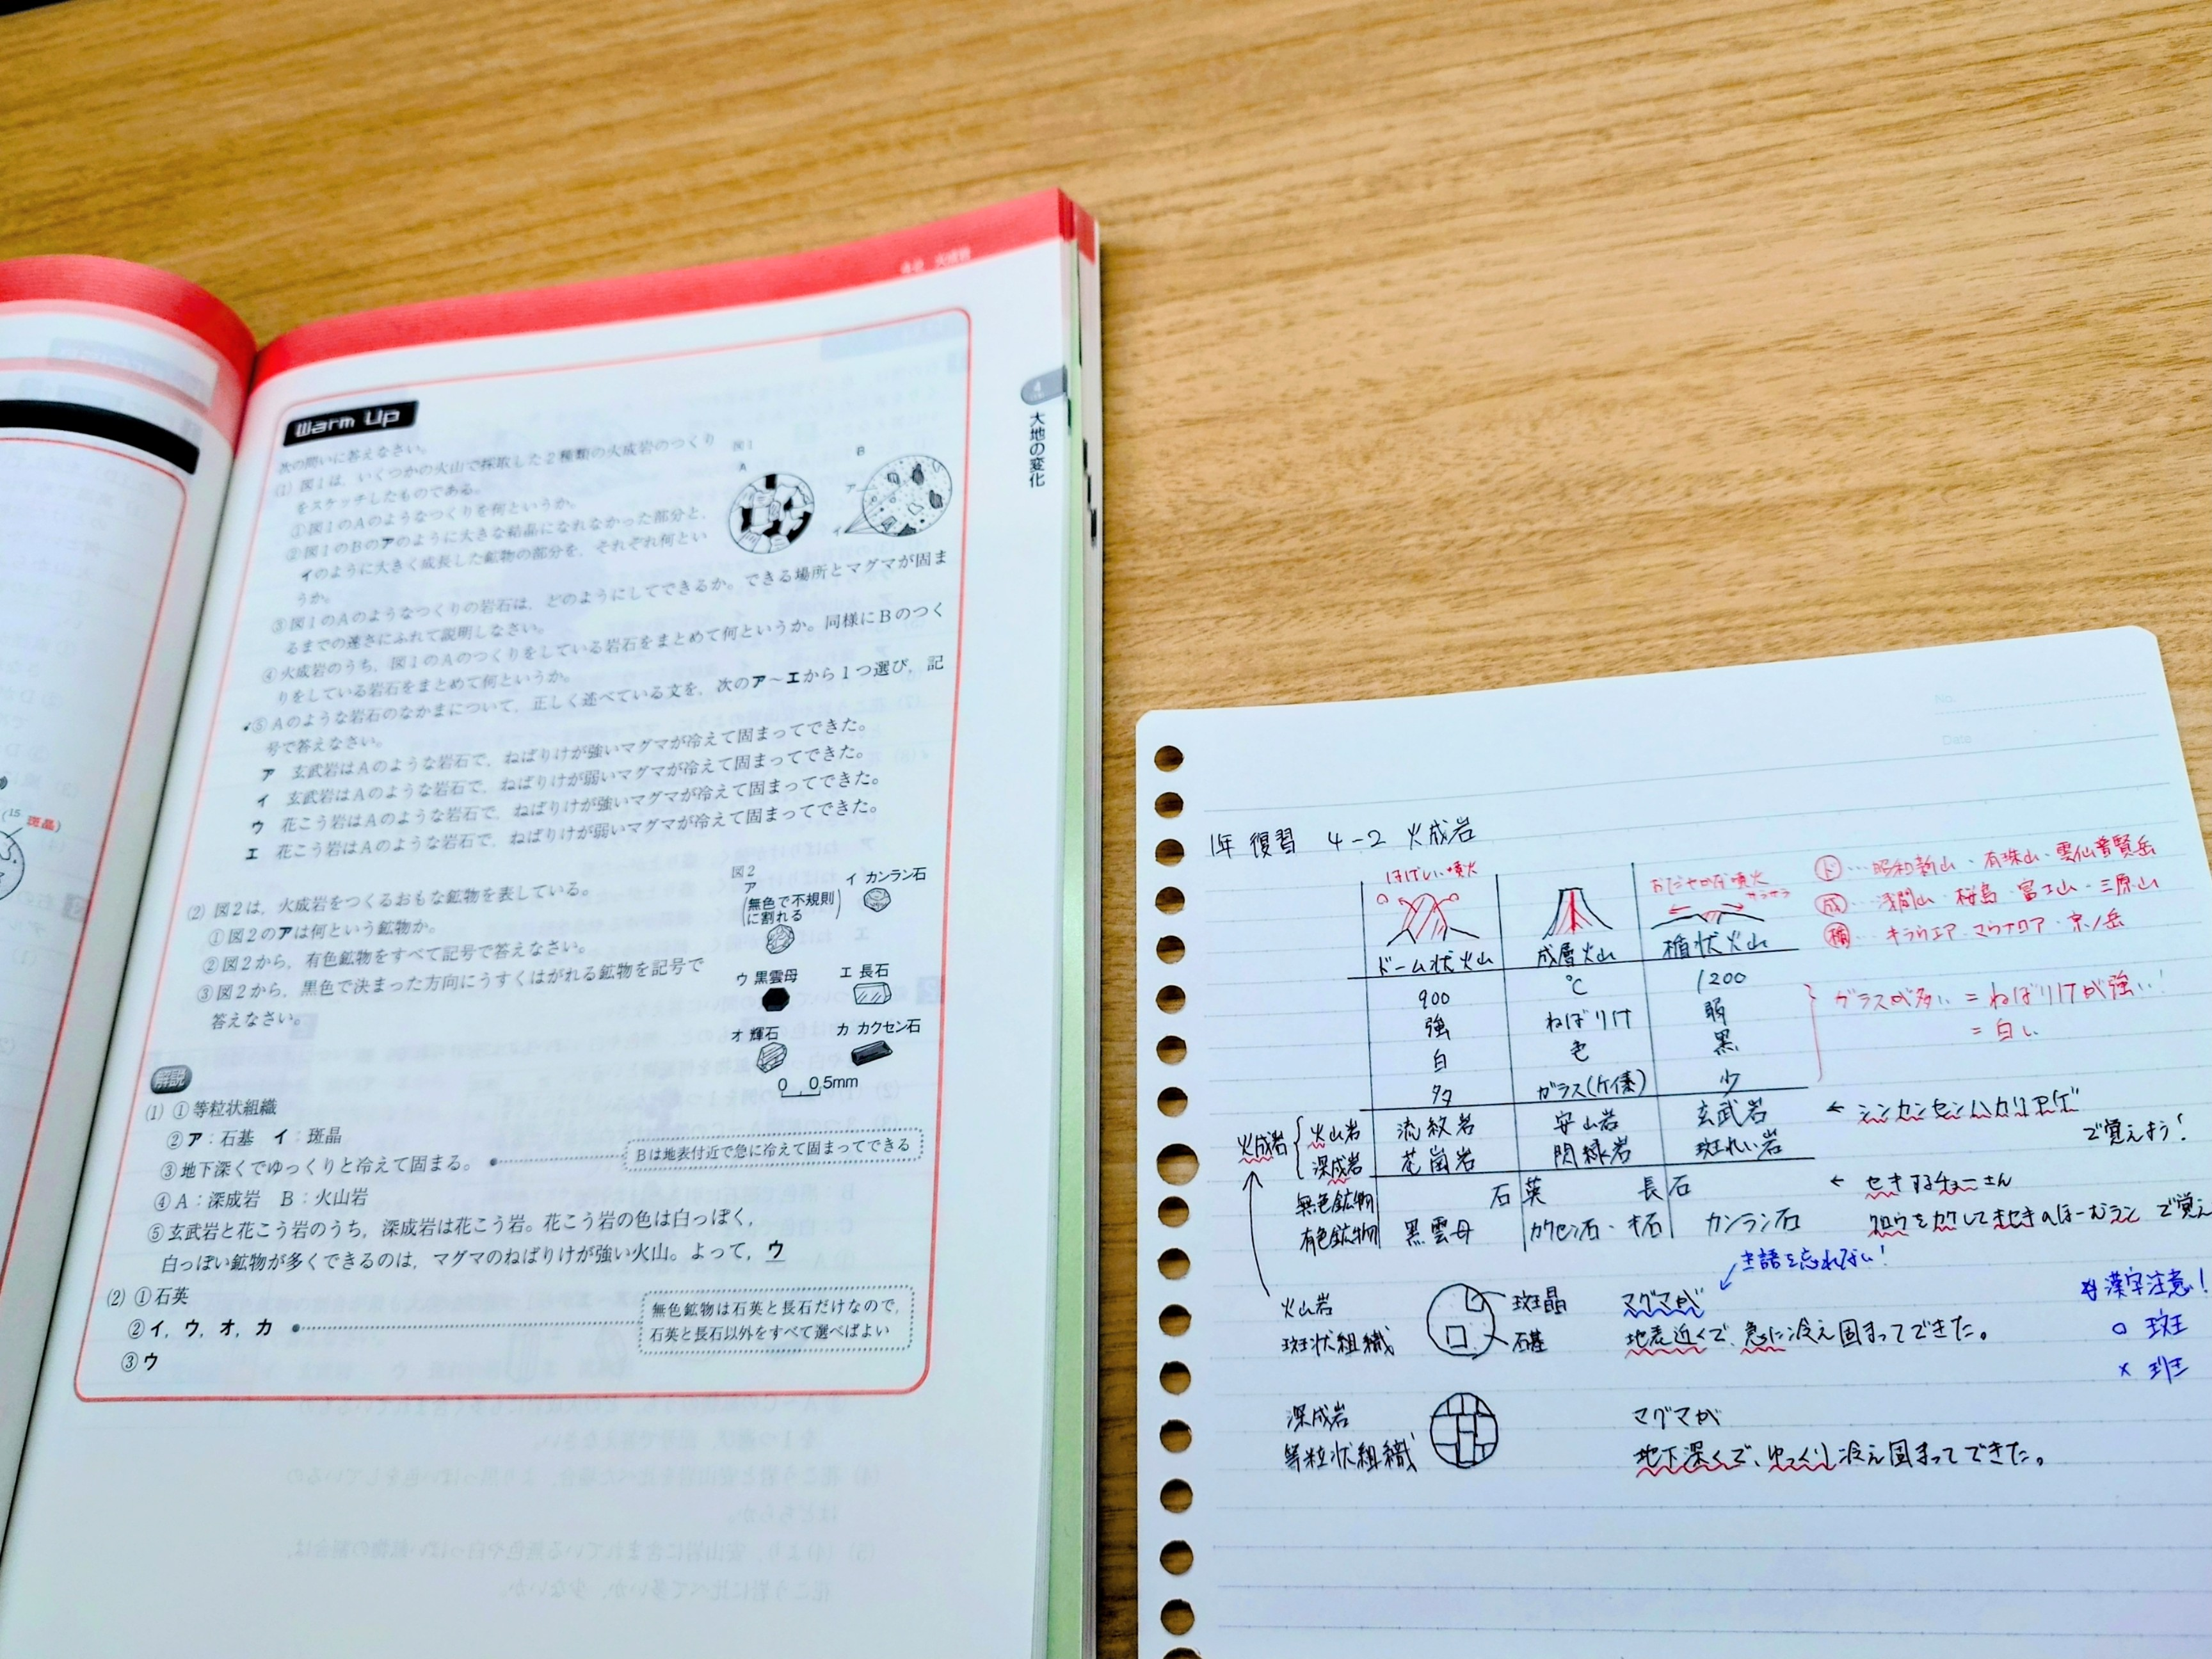 4-2 火成岩
4
大地の変化
(15 斑晶)
Warm Up
次の問いに答えなさい。
(1) 図1は,いくつかの火山で採取した2種類の火成岩のつくり
をスケッチしたものである。
①図1のAのようなつくりを何というか。
②図1のBのアのように大きな結晶になれなかった部分と,
イのように大きく成長した鉱物の部分を,それぞれ何とい
うか。
③図1のAのようなつくりの岩石は,どのようにしてできるか。できる場所とマグマが固ま
るまでの速さにふれて説明しなさい。
④火成岩のうち,図1のAのつくりをしている岩石をまとめて何というか。同様にBのつく
りをしている岩石をまとめて何というか。
⑤Aのような岩石のなかまについて,正しく述べている文を,次のア～エから1つ選び,記
号で答えなさい。
ア 玄武岩はAのような岩石で,ねばりけが強いマグマが冷えて固まってできた。
イ 玄武岩はAのような岩石で,ねばりけが弱いマグマが冷えて固まってできた。
ウ 花こう岩はAのような岩石で,ねばりけが強いマグマが冷えて固まってできた。
エ 花こう岩はAのような岩石で,ねばりけが弱いマグマが冷えて固まってできた。
図1
A
B
ア
イ
(2) 図2は,火成岩をつくるおもな鉱物を表している。
①図2のアは何という鉱物か。
②図2から,有色鉱物をすべて記号で答えなさい。
③図2から,黒色で決まった方向にうすくはがれる鉱物を記号で
答えなさい。
図2
ア
(無色で不規則に割れる)
イ カンラン石
ウ 黒雲母
エ 長石
オ 輝石
カ カクセン石
0 0.5mm
解説
(1) ①等粒状組織
②ア:石基 イ:斑晶
③地下深くでゆっくりと冷えて固まる。
Bは地表付近で急に冷えて固まってできる
④A:深成岩 B:火山岩
⑤玄武岩と花こう岩のうち,深成岩は花こう岩。花こう岩の色は白っぽく,
白っぽい鉱物が多くできるのは,マグマのねばりけが強い火山。よって,ウ
(2) ①石英
②イ,ウ,オ,カ
無色鉱物は石英と長石だけなので,
石英と長石以外をすべて選べばよい
③ウ
No.
Date
1年 復習 4-2 火成岩
はげしい噴火
おだやかな噴火
サラサラ
ドーム状火山 成層火山 楯状火山
ド…昭和新山・有珠山・雲仙普賢岳
成…浅間山・桜島・富士山・三原山
楯…キラウエア・マウナロア・京ノ岳
900 ℃ 1200
強 ねばりけ 弱
白 色 黒
多 ガラス(ケイ素) 少
ガラスが多い = ねばりけが強い!
= 白い
火成岩
火山岩 流紋岩 安山岩 玄武岩
深成岩 花崗岩 閃緑岩 斑れい岩
← シンカンセンハカリアゲ
で覚えよう!
無色鉱物 石英 長石
← セキするチョーさん
有色鉱物 黒雲母 カクセン石・キ石 カンラン石
クロウをカクしてきせきのほーむラン で覚え
火山岩
斑状組織
斑晶
石基
主語を忘れない!
マグマが
地表近くで、急に冷え固まってできた。
漢字注意!
○ 斑
× 班
深成岩
等粒状組織
マグマが
地下深くで、ゆっくり冷え固まってできた。